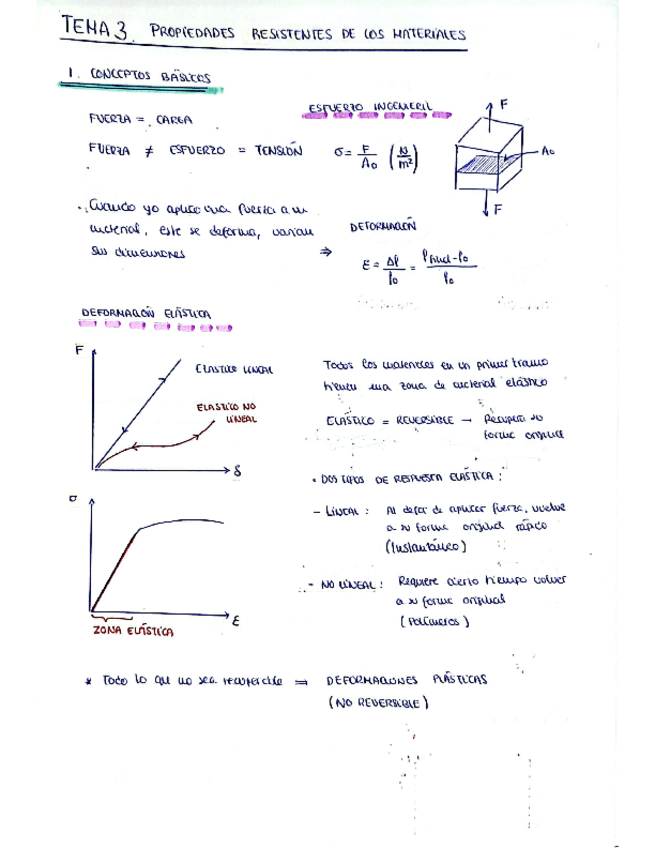 TEMA 3. PROPIEDADES RESISTENTES DE LOS MATERIALES
1. CONCEPTOS BÁSICOS
FUERZA = CARGA
FUERZA ≠ ESFUERZO = TENSIÓN
ESFUERZO INGENIERIL
σ = F / A₀ (N / m²)
F
A₀
F
Cuando yo aplico una fuerza a un
material, este se deforma, varían
sus dimensiones
⇒
DEFORMACIÓN
ε = Δl / l₀ = (l final - l₀) / l₀
DEFORMACIÓN ELÁSTICA
F
ELASTICO LINEAL
ELASTICO NO
LINEAL
δ
Todos los materiales en un primer tramo
tienen una zona de material elástico
ELÁSTICO = REVERSIBLE → Recupera su
forma original
• DOS TIPOS DE RESPUESTA ELÁSTICA:
- LINEAL: Al dejar de aplicar fuerza, vuelve
a su forma original rápido
(Instantáneo)
- NO LINEAL: Requiere cierto tiempo volver
a su forma original
(Polímeros)
σ
ε
ZONA ELÁSTICA
* Todo lo que no sea recuperable = DEFORMACIONES PLÁSTICAS
(NO REVERSIBLE)